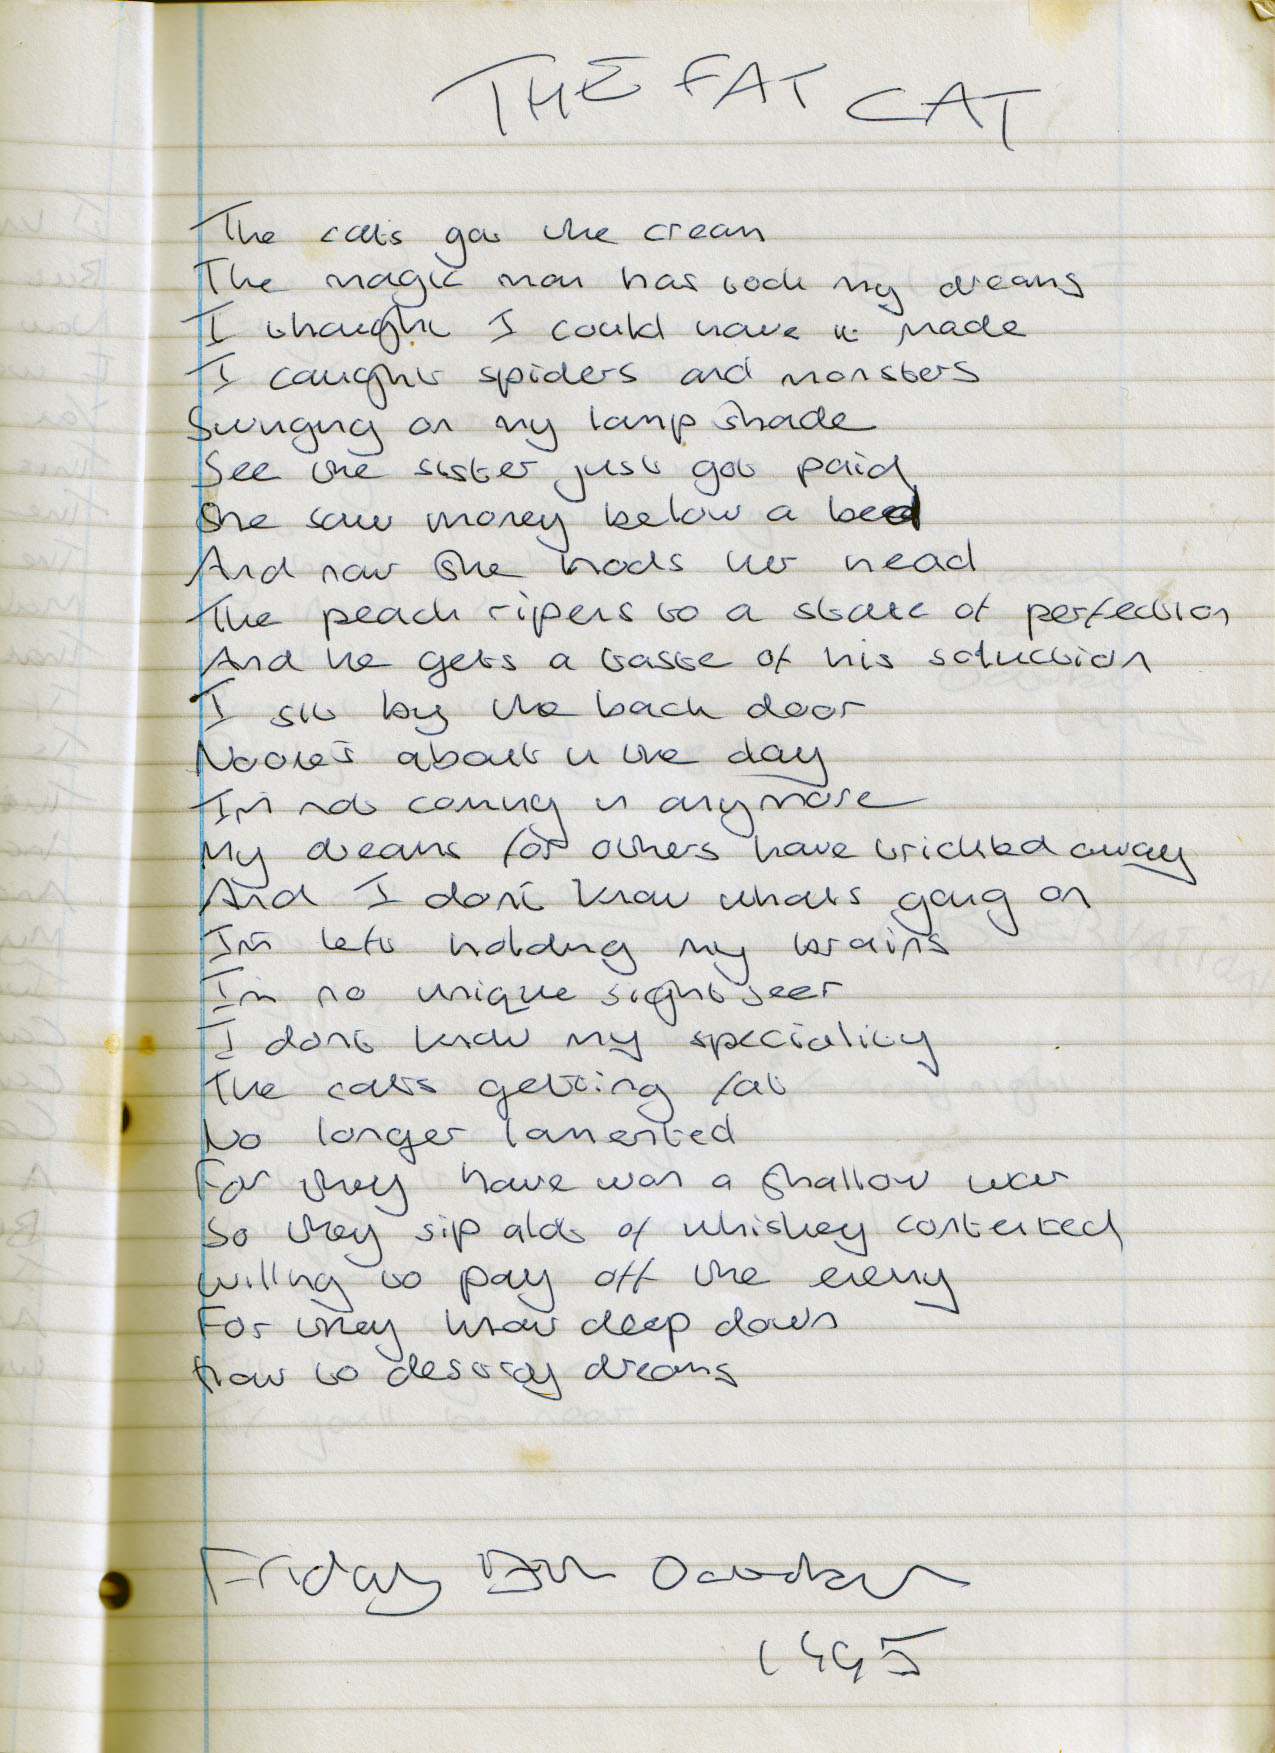 THE FAT CAT
The cats got the cream
The magic man has took my dreams
I thought I could have it made
I caught spiders and monsters
Swinging on my lamp shade
See the sister just got paid
She saw money below a bed
And now she nods her head
The peach ripens to a state of perfection
And he gets a taste of his solution
I sit by the back door
No one's about in the day
I'm not coming in anymore
My dreams for others have trickled away
And I don't know whats going on
I'm left holding my brains
I'm no unique sight seer
I dont know my speciality
The cats getting fat
No longer lamented
For they have won a shallow war
So they sip alots of whiskey contented
Willing to pay off the enemy
For they know deep down
How to destroy dreams
Friday October
1995